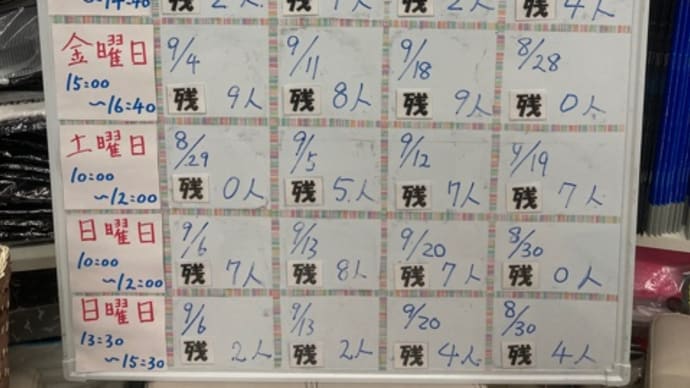 残 2人 残 残 2人 残 4人
金曜日 9/4 9/11 9/18 8/28
15:00
〜16:40 残 9人 残 8人 残 9人 残 0人
土曜日 8/29 9/5 9/12 9/19
10:00
〜12:00 残 0人 残 5人 残 7人 残 7人
日曜日 9/6 9/13 9/20 8/30
10:00
〜12:00 残 7人 残 8人 残 7人 残 0人
日曜日 9/6 9/13 9/20 8/30
13:30
〜15:30 残 2人 残 2人 残 4人 残 4人